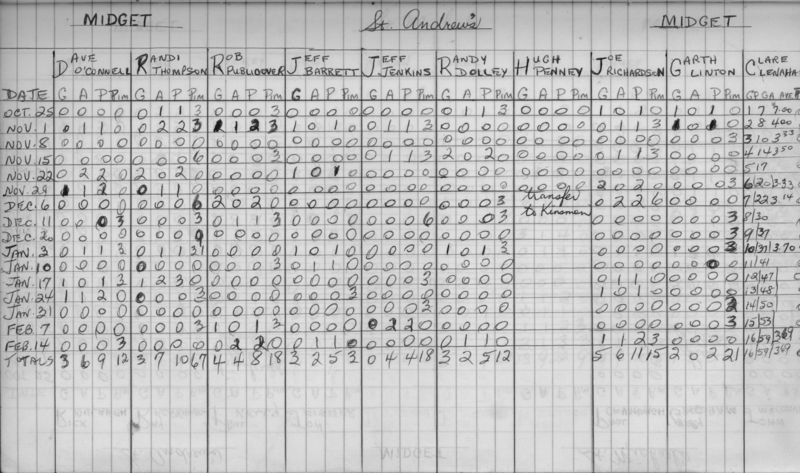 MIDGET St. Andrew's MIDGET
DAVE O'CONNELL RANDI THOMPSON ROB PUBLICOVER JEFF BARRETT JEFF JENKINS RANDY DOLLEY HUGH PENNEY JOE RICHARDSON GARTH LINTON CLARE LENAHAN
DATE G A P Pim G A P Pim G A P Pim G A P Pim G A P Pim G A P Pim G A P Pim G A P Pim G A P Pim GP GA AVE
OCT. 25 0 0 0 0 0 1 1 3 0 0 0 3 0 0 0 0 0 0 0 0 0 1 1 3 0 0 0 0 1 0 1 0 1 0 1 0 1 7 7.00
NOV. 1 0 1 1 0 0 2 2 3 1 2 3 1 0 1 0 0 1 1 3 0 0 0 0 0 0 0 0 0 1 1 3 1 0 1 0 2 8 4.00
NOV. 8 0 0 0 0 0 0 0 0 0 0 0 0 0 0 0 0 0 0 0 0 0 0 0 0 0 0 0 0 0 0 0 0 0 0 0 3 3 10 3.33
NOV. 15 0 0 0 0 0 0 0 6 0 0 0 3 0 0 0 0 0 1 1 3 2 0 2 0 0 0 0 0 0 1 1 3 0 0 0 0 4 14 3.50
NOV. 22 0 2 2 0 2 0 2 0 0 0 0 0 1 0 1 0 0 0 0 0 0 0 0 0 0 0 0 0 0 0 0 0 0 0 0 0 5 17
NOV. 29 1 1 2 0 0 1 1 0 0 0 0 0 0 0 0 0 0 0 0 0 0 0 0 0 transfer 2 0 2 0 0 0 0 3 6 20 3.33
DEC. 6 0 0 0 0 0 0 0 6 2 0 2 0 0 0 0 0 0 0 0 0 0 0 0 3 to Kinsmen 0 2 2 6 0 0 0 0 7 22 3.14
DEC. 11 0 0 0 3 0 0 0 3 0 1 1 3 0 0 0 0 0 0 0 6 0 0 0 3 0 0 0 0 0 0 0 3 8/30
DEC. 20 0 0 0 0 0 0 0 9 0 0 0 0 0 0 0 0 0 0 0 0 0 0 0 0 0 0 0 0 0 0 0 3 9/37
JAN. 3 0 1 1 3 0 1 1 0 0 0 0 1 0 1 0 0 0 0 0 1 0 1 3 0 0 0 0 0 0 0 3 10/37 3.70
JAN. 10 0 0 0 0 0 0 0 0 0 0 0 3 0 1 1 0 0 0 0 0 0 0 0 0 0 0 0 0 0 0 0 0 11/41
JAN. 17 1 0 1 3 1 2 3 0 0 0 0 0 0 0 0 0 0 0 0 3 0 0 0 0 0 1 1 0 0 0 0 0 12/47
JAN. 24 1 1 2 0 0 0 0 3 0 0 0 0 0 0 0 3 0 0 0 0 0 0 0 0 1 0 1 0 0 0 0 0 13/48
JAN. 31 0 0 0 0 0 0 0 0 0 0 0 0 0 0 0 0 0 0 0 0 0 0 0 0 0 0 0 0 0 0 14/50
FEB. 7 0 0 0 0 0 0 0 3 1 0 1 3 0 0 0 0 0 2 2 0 0 0 0 0 0 0 0 0 0 0 0 3 15/53
FEB. 14 0 0 0 3 0 0 0 0 0 2 2 0 0 1 1 0 0 0 0 0 0 1 1 0 1 1 2 3 0 0 0 0 16/59 3.69
TOTALS 3 6 9 12 3 7 10 67 4 4 8 18 3 2 5 3 0 4 4 18 3 2 5 12 5 6 11 15 2 0 2 21 16/59 3.69